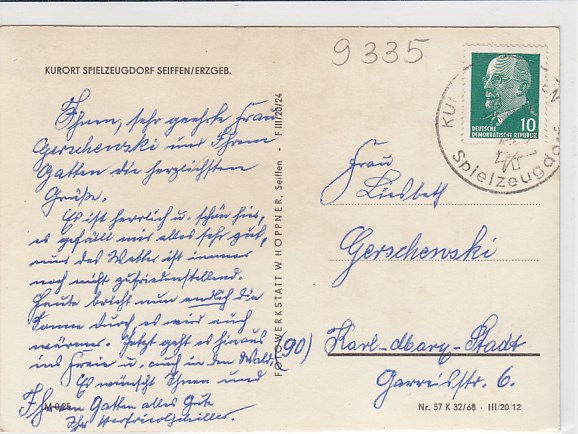 9335
KURORT SPIELZEUGDORF SEIFFEN/ERZGEB.
Ihnen, sehr geehrte Frau
Gerschewski und Ihrem
Gatten die herzlichsten
Grüße.
Es ist herrlich u. schön hier,
es gefällt mir alles sehr gut,
nur das Wetter ist immer
noch nicht zufriedenstellend.
Heute bricht nun endlich die
Sonne durch, es wird auch
wärmer. Jetzt geht es hinaus
ins Freie u. auch in den Wald.
Es wünscht Ihnen und
Ihrem Gatten alles Gute
Ihr
M 0,25
FOTOWERKSTATT W. HÖPPNER, Seiffen F III/20/24
10
DEUTSCHE
DEMOKRATISCHE REPUBLIK
KUR
EN
Spielzeugdorf
Frau
Liesbeth
Gerschewski
(90) Karl-Marx-Stadt
Garreisstr. 6.
Nr. 57 K 32/68 - III/20/12